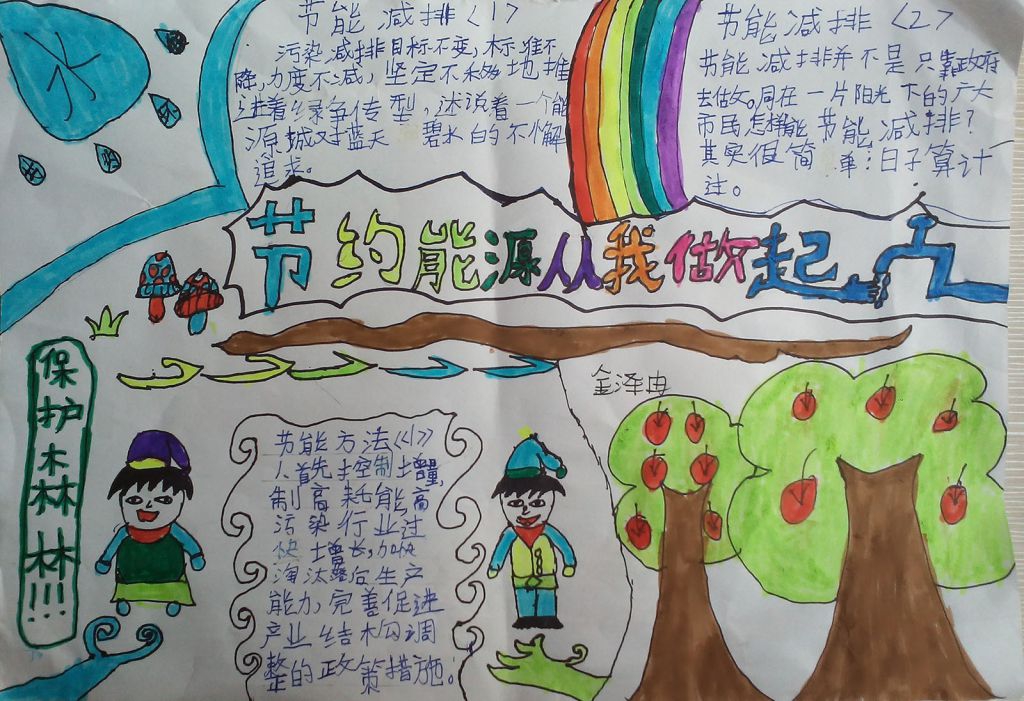 水
节能减排<1>
污染减排目标不变,标准不
降,力度不减,坚定不移地推
进着绿争传型,述说着一个能
源城对蓝天 碧水的不懈
追求。
节能减排<2>
节能减排并不是只靠政府
去做。同在一片阳光下的广大
市民怎样能节能减排?
其实很简单:日子算计
过。
节约能源从我做起
金泽冉
保护森林林!!!
节能方法<1>
人首先控制增量,
制高耗能高
污染行业过
快增长,加快
淘汰落后生产
能力,完善促进
产业结构调
整的政策措施。